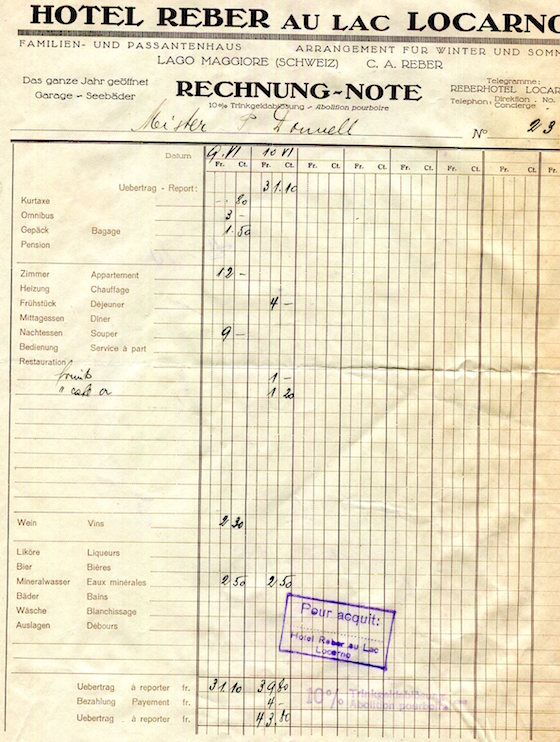 HOTEL REBER AU LAC LOCARNO
FAMILIEN- UND PASSANTENHAUS ARRANGEMENT FÜR WINTER UND SOMM
LAGO MAGGIORE (SCHWEIZ) C. A. REBER
Das ganze Jahr geöffnet
Garage - Seebäder
RECHNUNG-NOTE
10% Trinkgeldablösung - Abolition pourboire
Telegramme:
REBERHOTEL LOCAR
Telephon: Direktion - No.
Concierge
Mister P Donnell No 23
Datum 9. VI 10 VI
Fr. Ct. Fr. Ct. Fr. Ct. Fr. Ct. Fr. Ct. Fr. Ct. Fr. Ct. Fr. Ct. Fr.
Uebertrag - Report: 31.10
Kurtaxe -. 80
Omnibus 3 -
Gepäck Bagage 1 50
Pension
Zimmer Appartement 12 -
Heizung Chauffage
Frühstück Déjeuner 4 -
Mittagessen Dîner
Nachtessen Souper 9 -
Bedienung Service à part
Restauration
1 -
" café 1 20
Wein Vins 2 30
Liköre Liqueurs
Bier Bières
Mineralwasser Eaux minérales 2 50 2 50
Bäder Bains
Wäsche Blanchissage
Auslagen Débours
Pour acquit:
Hotel Reber au Lac
Locarno
Uebertrag à reporter fr. 31.10 39.80
10% Trinkgeldablösung
Abolition pourboire
Bezahlung Payement fr. 4 -
Uebertrag à reporter fr. 43.80